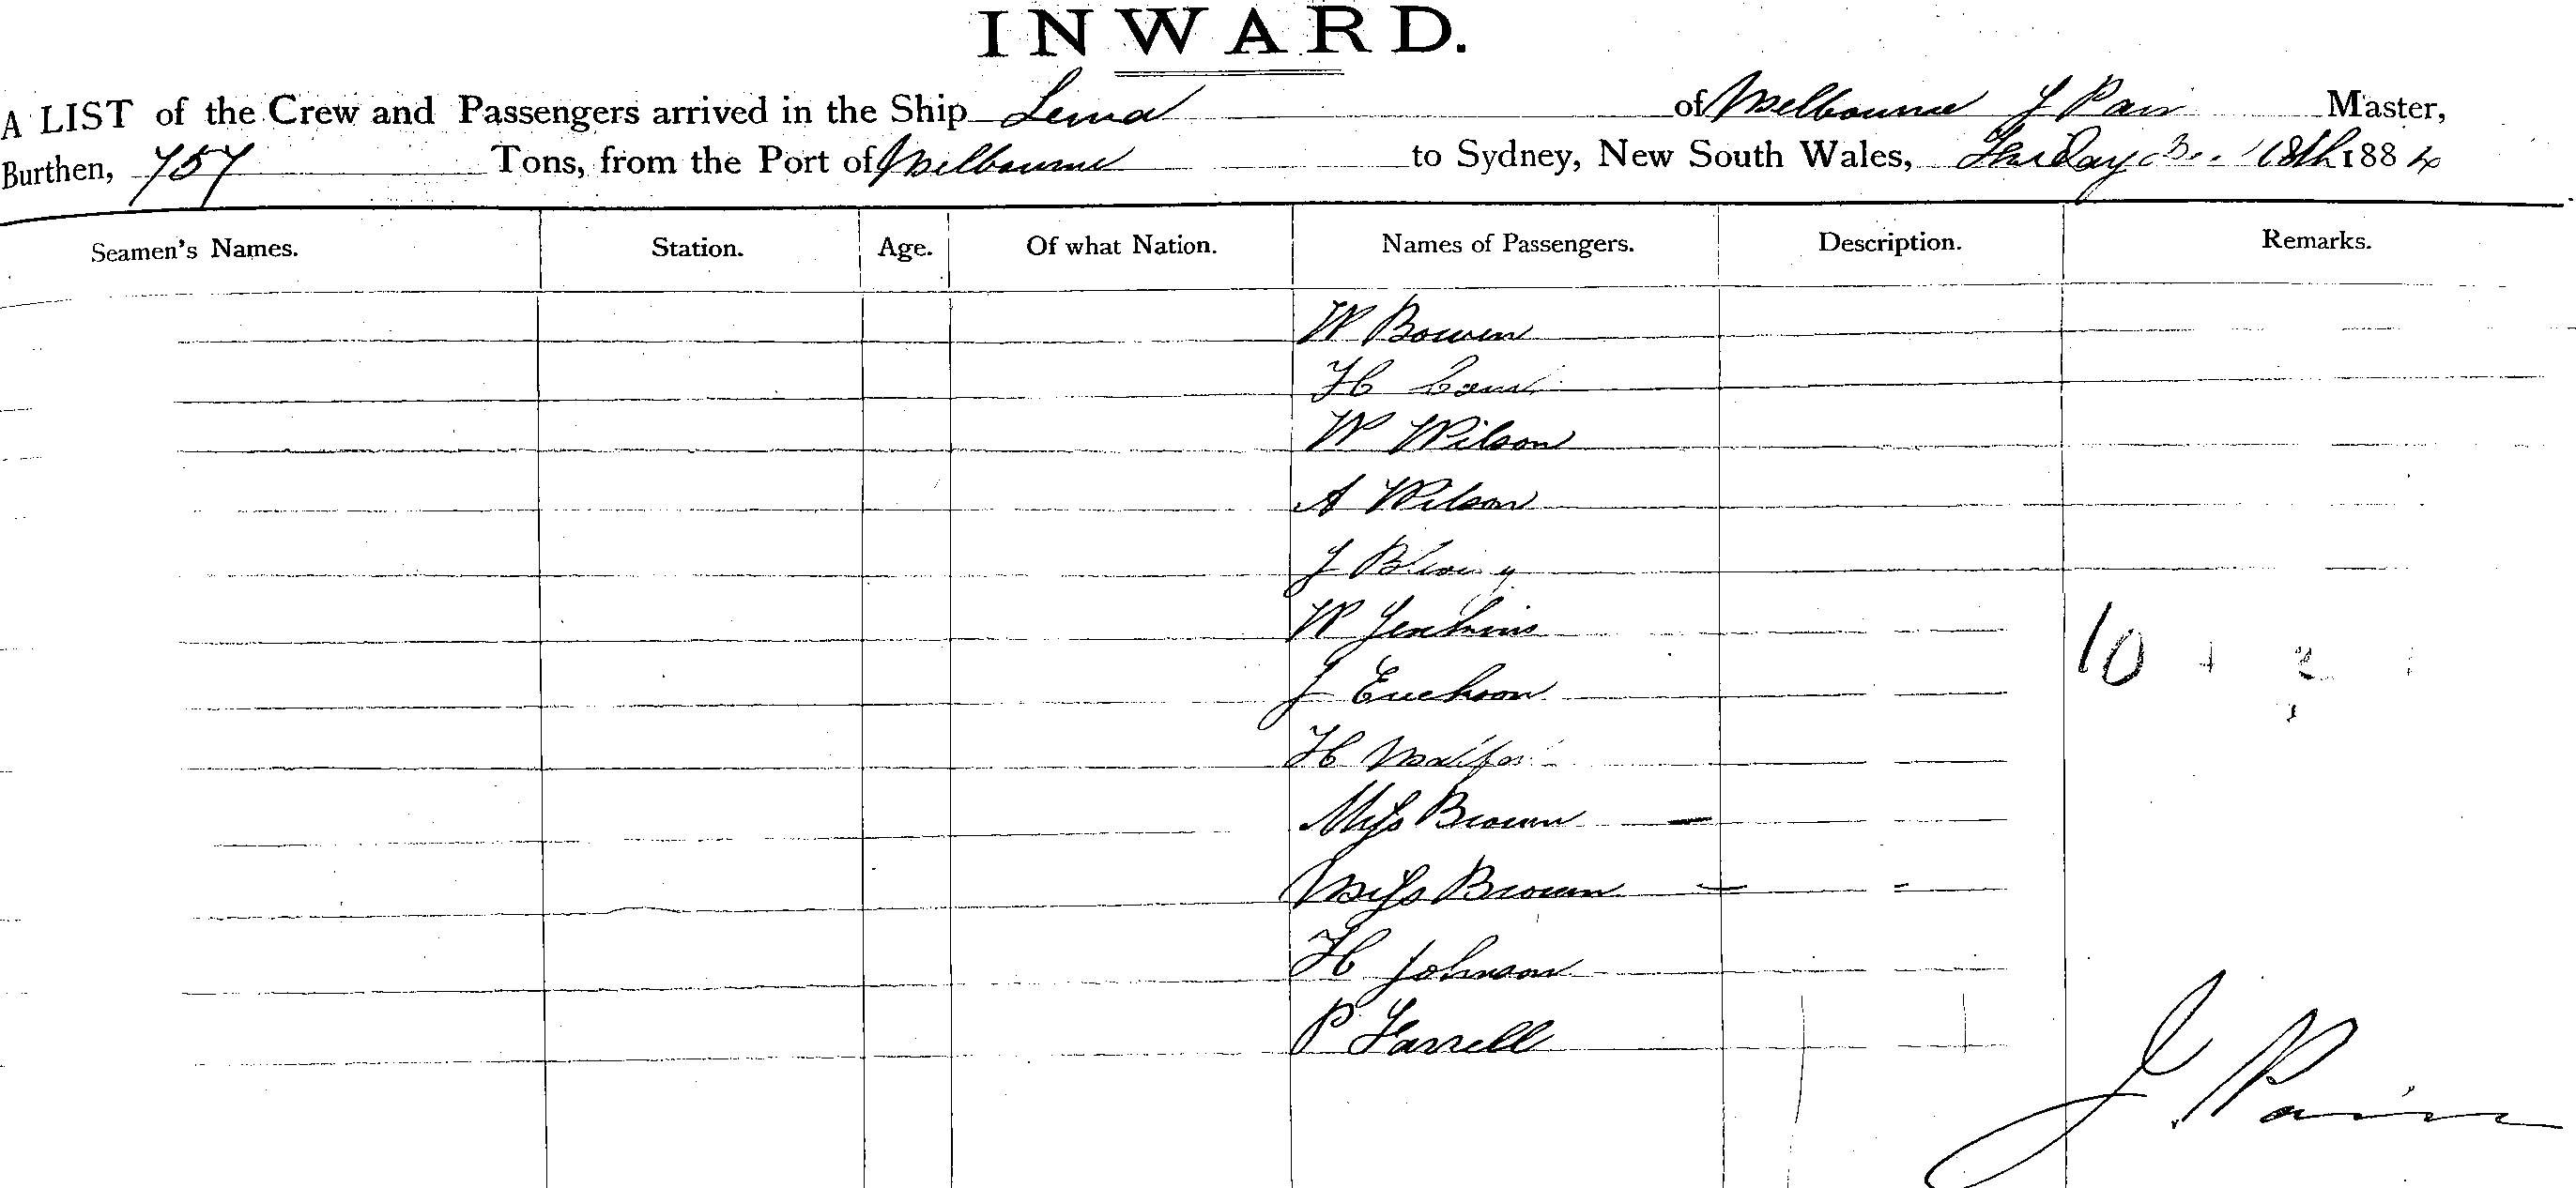 INWARD.
A LIST of the Crew and Passengers arrived in the Ship Lema of Melbourne J Pain Master,
Burthen, 757 Tons, from the Port of Melbourne to Sydney, New South Wales, 18th 1884
Seamen's Names. Station. Age. Of what Nation. Names of Passengers. Description. Remarks.
W Bowen
H
W Wilson
A Wilson
J
W Jenkins
J
10 + 2
H
Miss Brown —
Miss Brown —
H Johnson
P Farrell
J. Pain